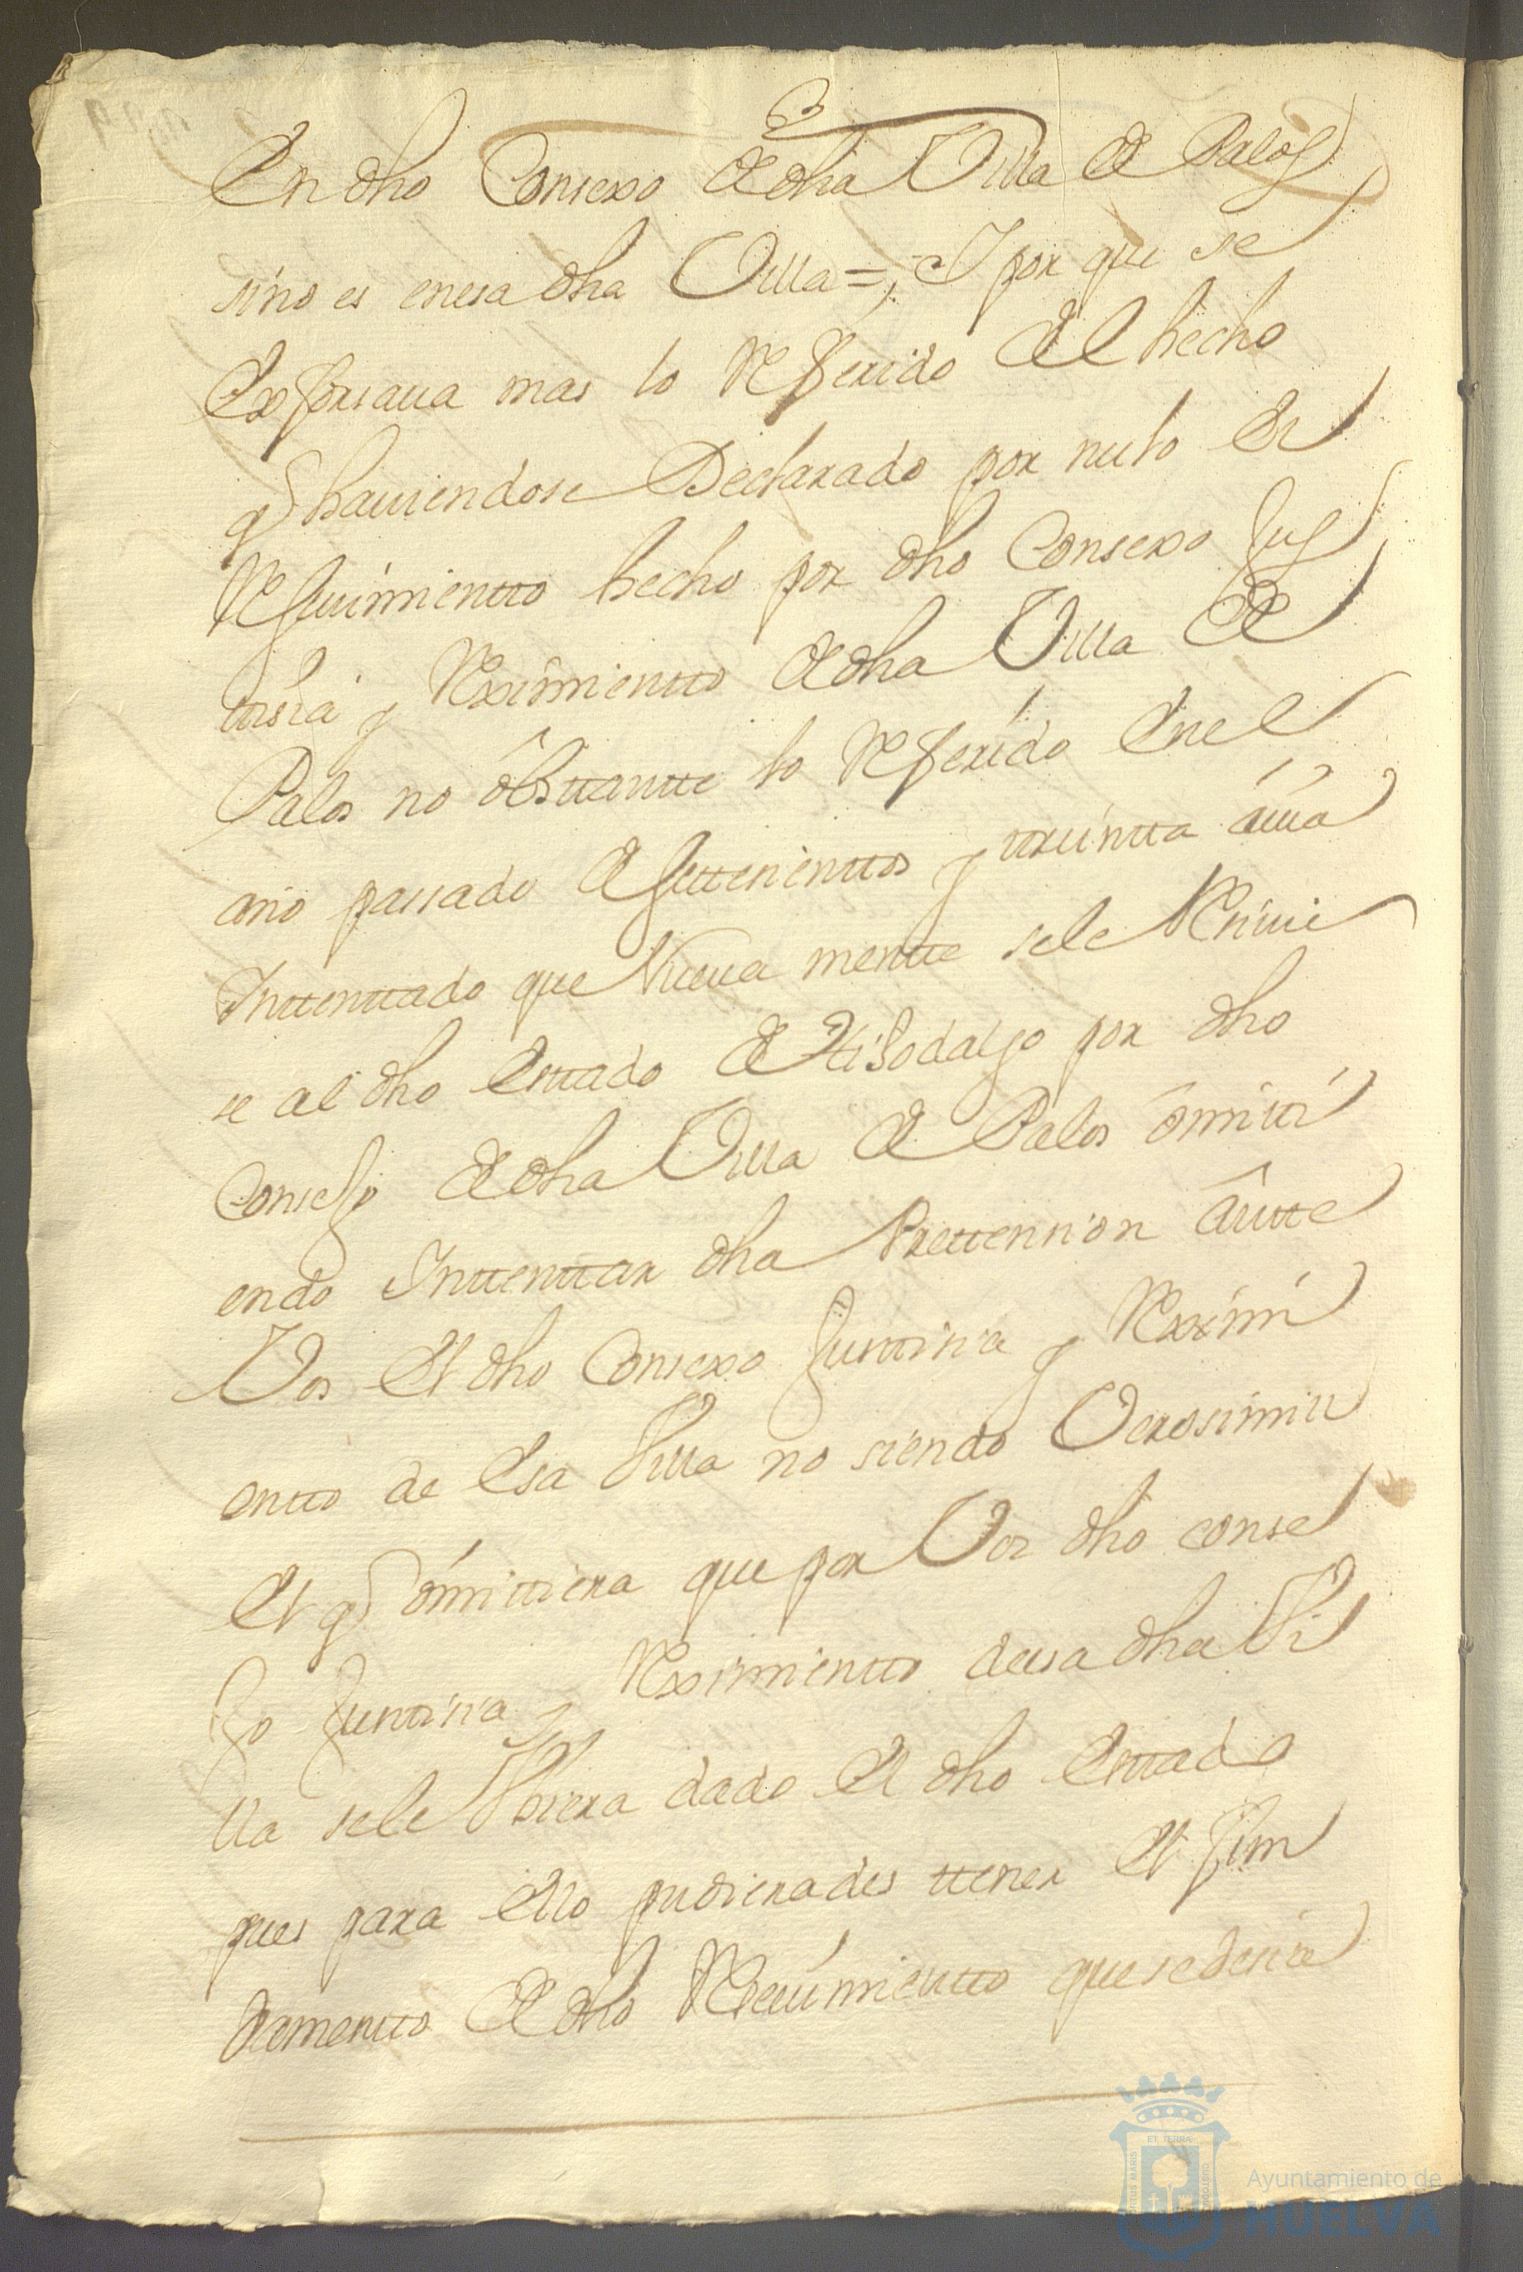 En dho Consexo de dha Villa de Palos
sino es enesa dha Villa =, I por que se
Exforsaua mas lo Referido del hecho
q.e hauiendose Declarado por nulo el
Resiuimientto hecho por dho Consexo Jus
tisia y Reximientto de dha Villa de
Palos no obsttantte lo Referido Enel
año passado de setteenttos y treintta auia
Inttenttado que Nueua mentte sele Reciuie
se al dho Esttado de Hisodalgo por dho
Consejo de dha Villa de Palos omitti
endo Inttenttar dha Prettension antte
Vos el dho Consexo Justtisia y Reximi
entto de Esa Villa no siendo Verosimill
el q.e omittiera que por Vos dho conse
Jo Justtisia y Reximientto deesa dha Vi
lla sele Vbiera dado el dho Esttado
pues para Ello pudierades ttener el fun
damentto de dho Reciuimientto que se desia
Ayuntamiento de
HUELVA